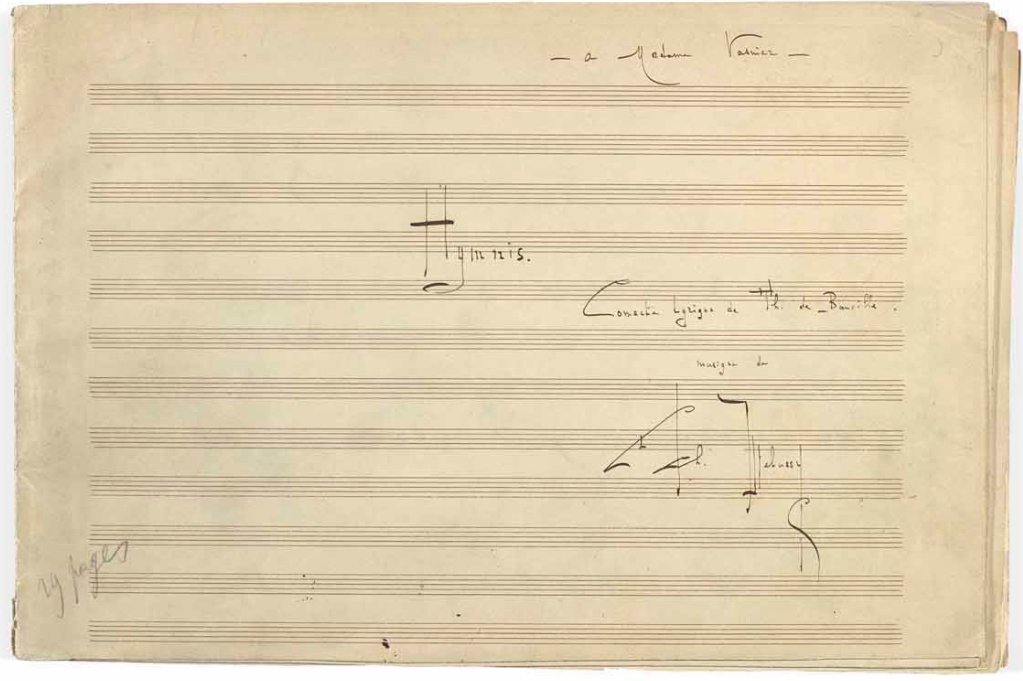 — a Madame Vasnier —
Hymnis.
Comédie Lyrique de Th. de Banville.
musique de
Ch. Debussy
29 pages